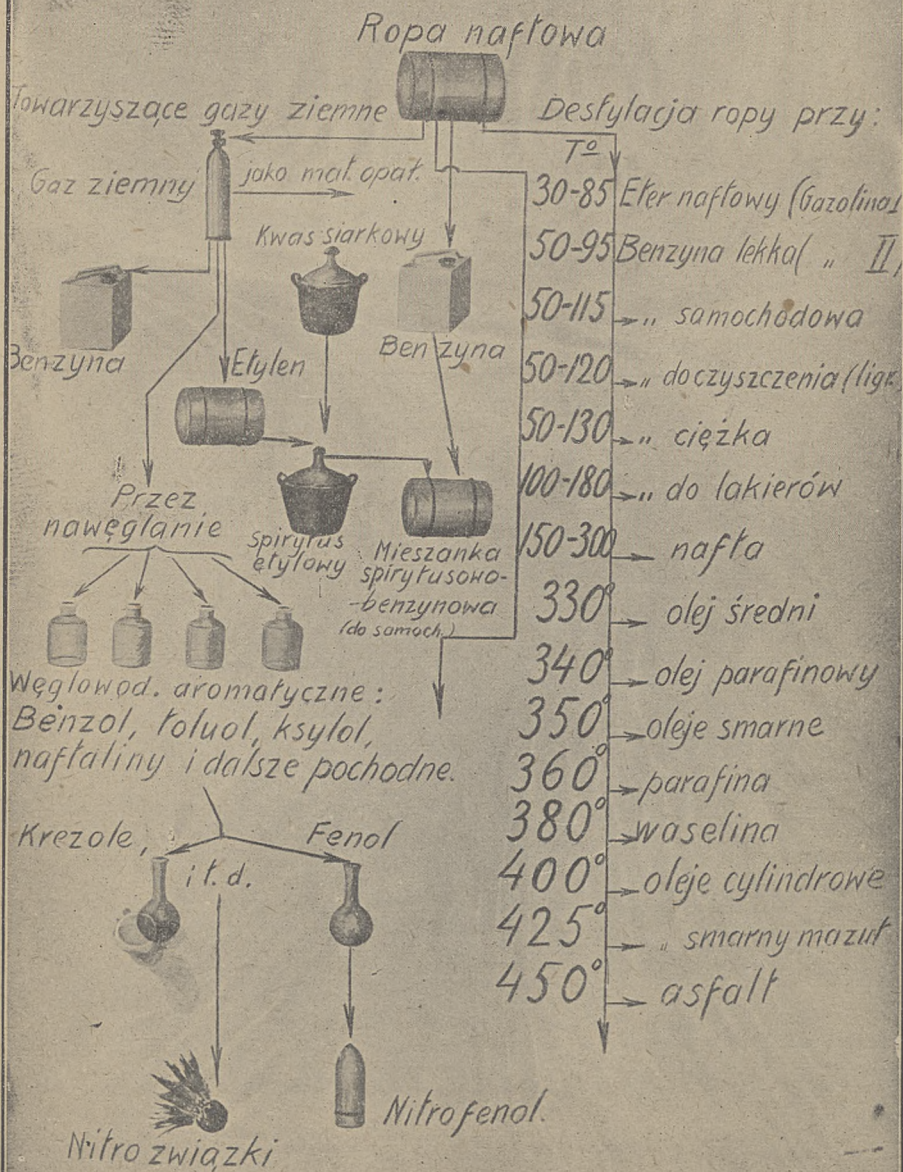 Ropa naftowa
Towarzyszące gazy ziemne
Gaz ziemny
jako mat. opał.
Kwas siarkowy
Benzyna
Benzyna
Etylen
Przez
nawęglanie
Spirytus
etylowy
Mieszanka
spirytusowo-
-benzynowa
(do samoch.)
Węglowod. aromatyczne:
Benzol, toluol, ksylol,
naftaliny i dalsze pochodne.
Krezole,
Fenol
i t. d.
Nitrofenol.
Nitro związki
Desfylacja ropy przy:
T°
30-85 Eter naftowy (Gazolina I
50-95 Benzyna lekka ( „ II)
50-115 „ samochodowa
50-120 „ do czyszczenia (ligr.
50-130 „ ciężka
100-180 „ do lakierów
150-300 nafta
330° olej średni
340° olej parafinowy
350° oleje smarne
360° parafina
380° waselina
400° oleje cylindrowe
425° „ smarny mazut
450° asfalt